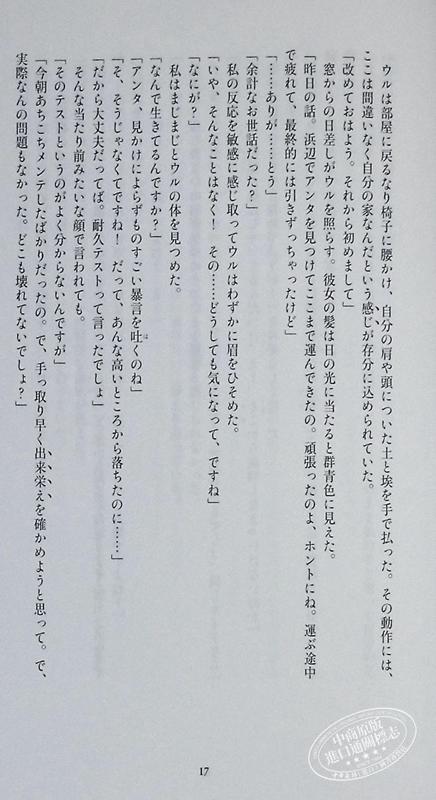 ウルは部屋に戻るなり椅子に腰かけ、自分の肩や頭についた土と埃を手で払った。その動作には、
ここは間違いなく自分の家なんだという感じが存分に込められていた。
「改めておはよう。それから初めまして」
窓からの日差しがウルを照らす。彼女の髪は日の光に当たると群青色に見えた。
「昨日の話。浜辺でアンタを見つけてここまで運んできたの。頑張ったのよ、ホントにね。運ぶ途中
で疲れて、最終的には引きずっちゃったけど」
「……ありが……とう」
「余計なお世話だった?」
私の反応を敏感に感じ取ってウルはわずかに眉をひそめた。
「いや、そんなことはなく! その……どうしても気になって、ですね」
「なにが?」
私はまじまじとウルの体を見つめた。
「なんで生きてるんですか?」
「アンタ、見かけによらずものすごい暴言を吐くのね」
は
「そ、そうじゃなくてですね! だって、あんな高いところから落ちたのに……」
「だから大丈夫だってば。耐久テストって言ったでしょ」
そんな当たり前みたいな顔で言われても。
「そのテストというのがよく分からないんですが」
「今朝あちこちメンテしたばかりだったの。で、手っ取り早く出来栄えを確かめようと思って。で、
実際なんの問題もなかった。どこも壊れてないでしょ?」
17
中商原版
進口通關標志